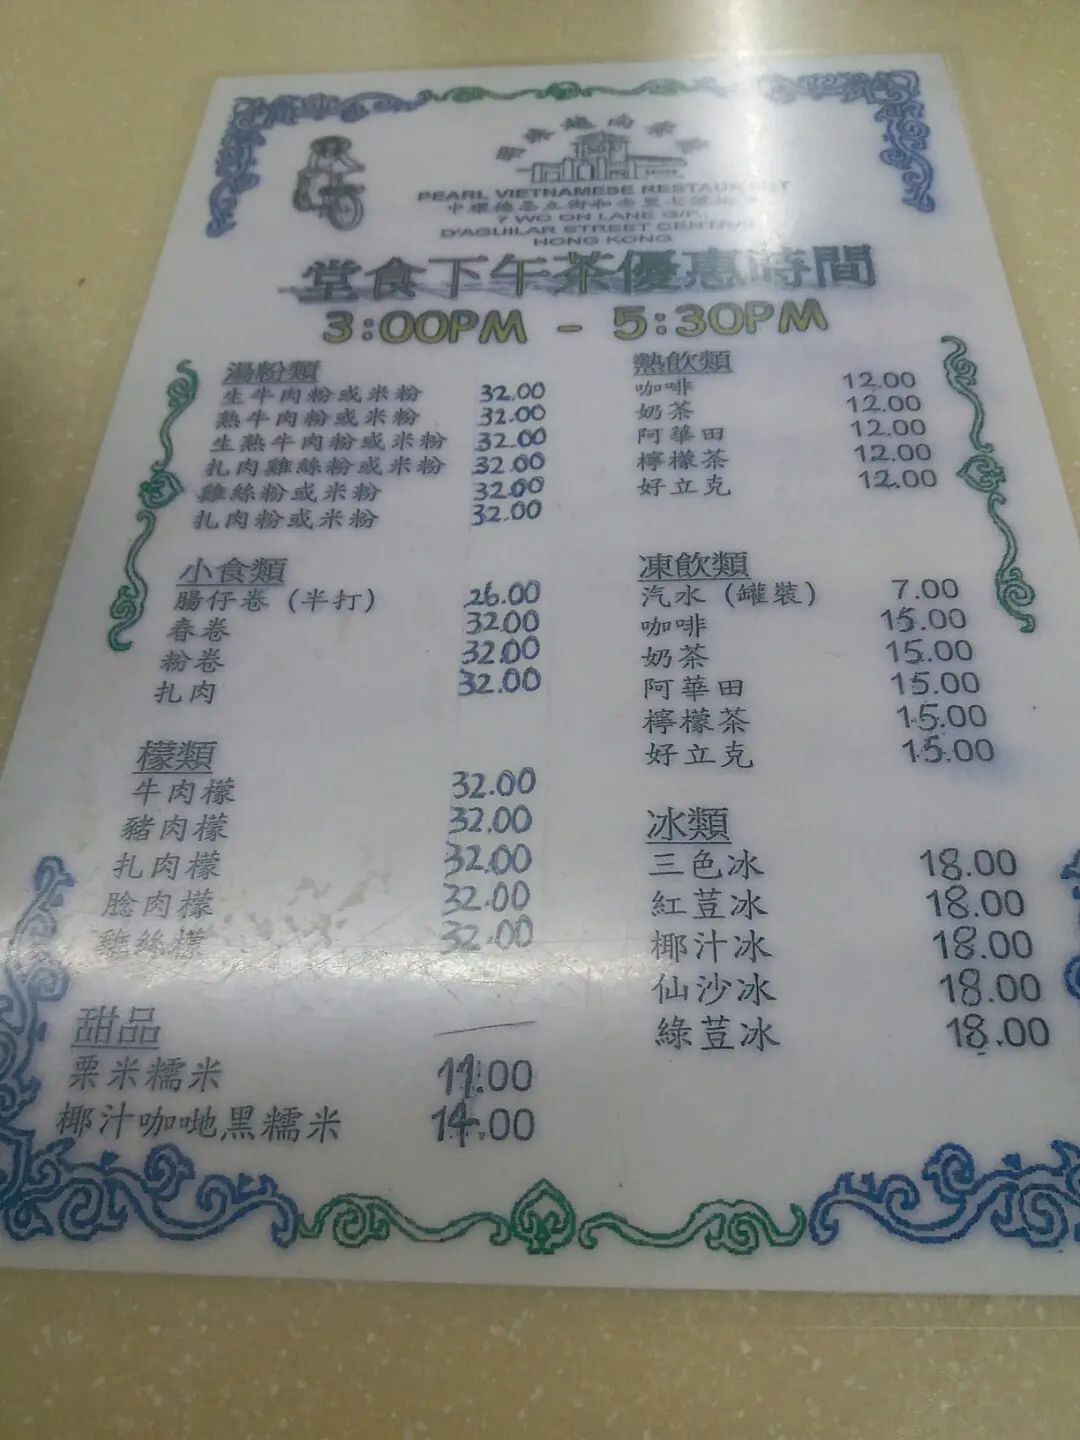 越南
PEARL VIETNAMESE RESTAURANT
中環德忌立街和安里七號地
7 WO ON LANE G/F.,
D'AGUILAR STREET CENTRAL
HONG KONG
堂食下午茶優惠時間
3:00PM - 5:30PM
湯粉類
生牛肉粉或米粉 32.00
熟牛肉粉或米粉 32.00
生熟牛肉粉或米粉 32.00
扎肉雞絲粉或米粉 32.00
雞絲粉或米粉 32.00
扎肉粉或米粉 32.00
小食類
腸仔卷 (半打) 26.00
春卷 32.00
粉卷 32.00
扎肉 32.00
檬類
牛肉檬 32.00
豬肉檬 32.00
扎肉檬 32.00
腍肉檬 32.00
雞絲檬 32.00
甜品
栗米糯米 11.00
椰汁咖哋黑糯米 14.00
熱飲類
咖啡 12.00
奶茶 12.00
阿華田 12.00
檸檬茶 12.00
好立克 12.00
凍飲類
汽水 (罐裝) 7.00
咖啡 15.00
奶茶 15.00
阿華田 15.00
檸檬茶 15.00
好立克 15.00
冰類
三色冰 18.00
紅荳冰 18.00
椰汁冰 18.00
仙沙冰 18.00
綠荳冰 18.00